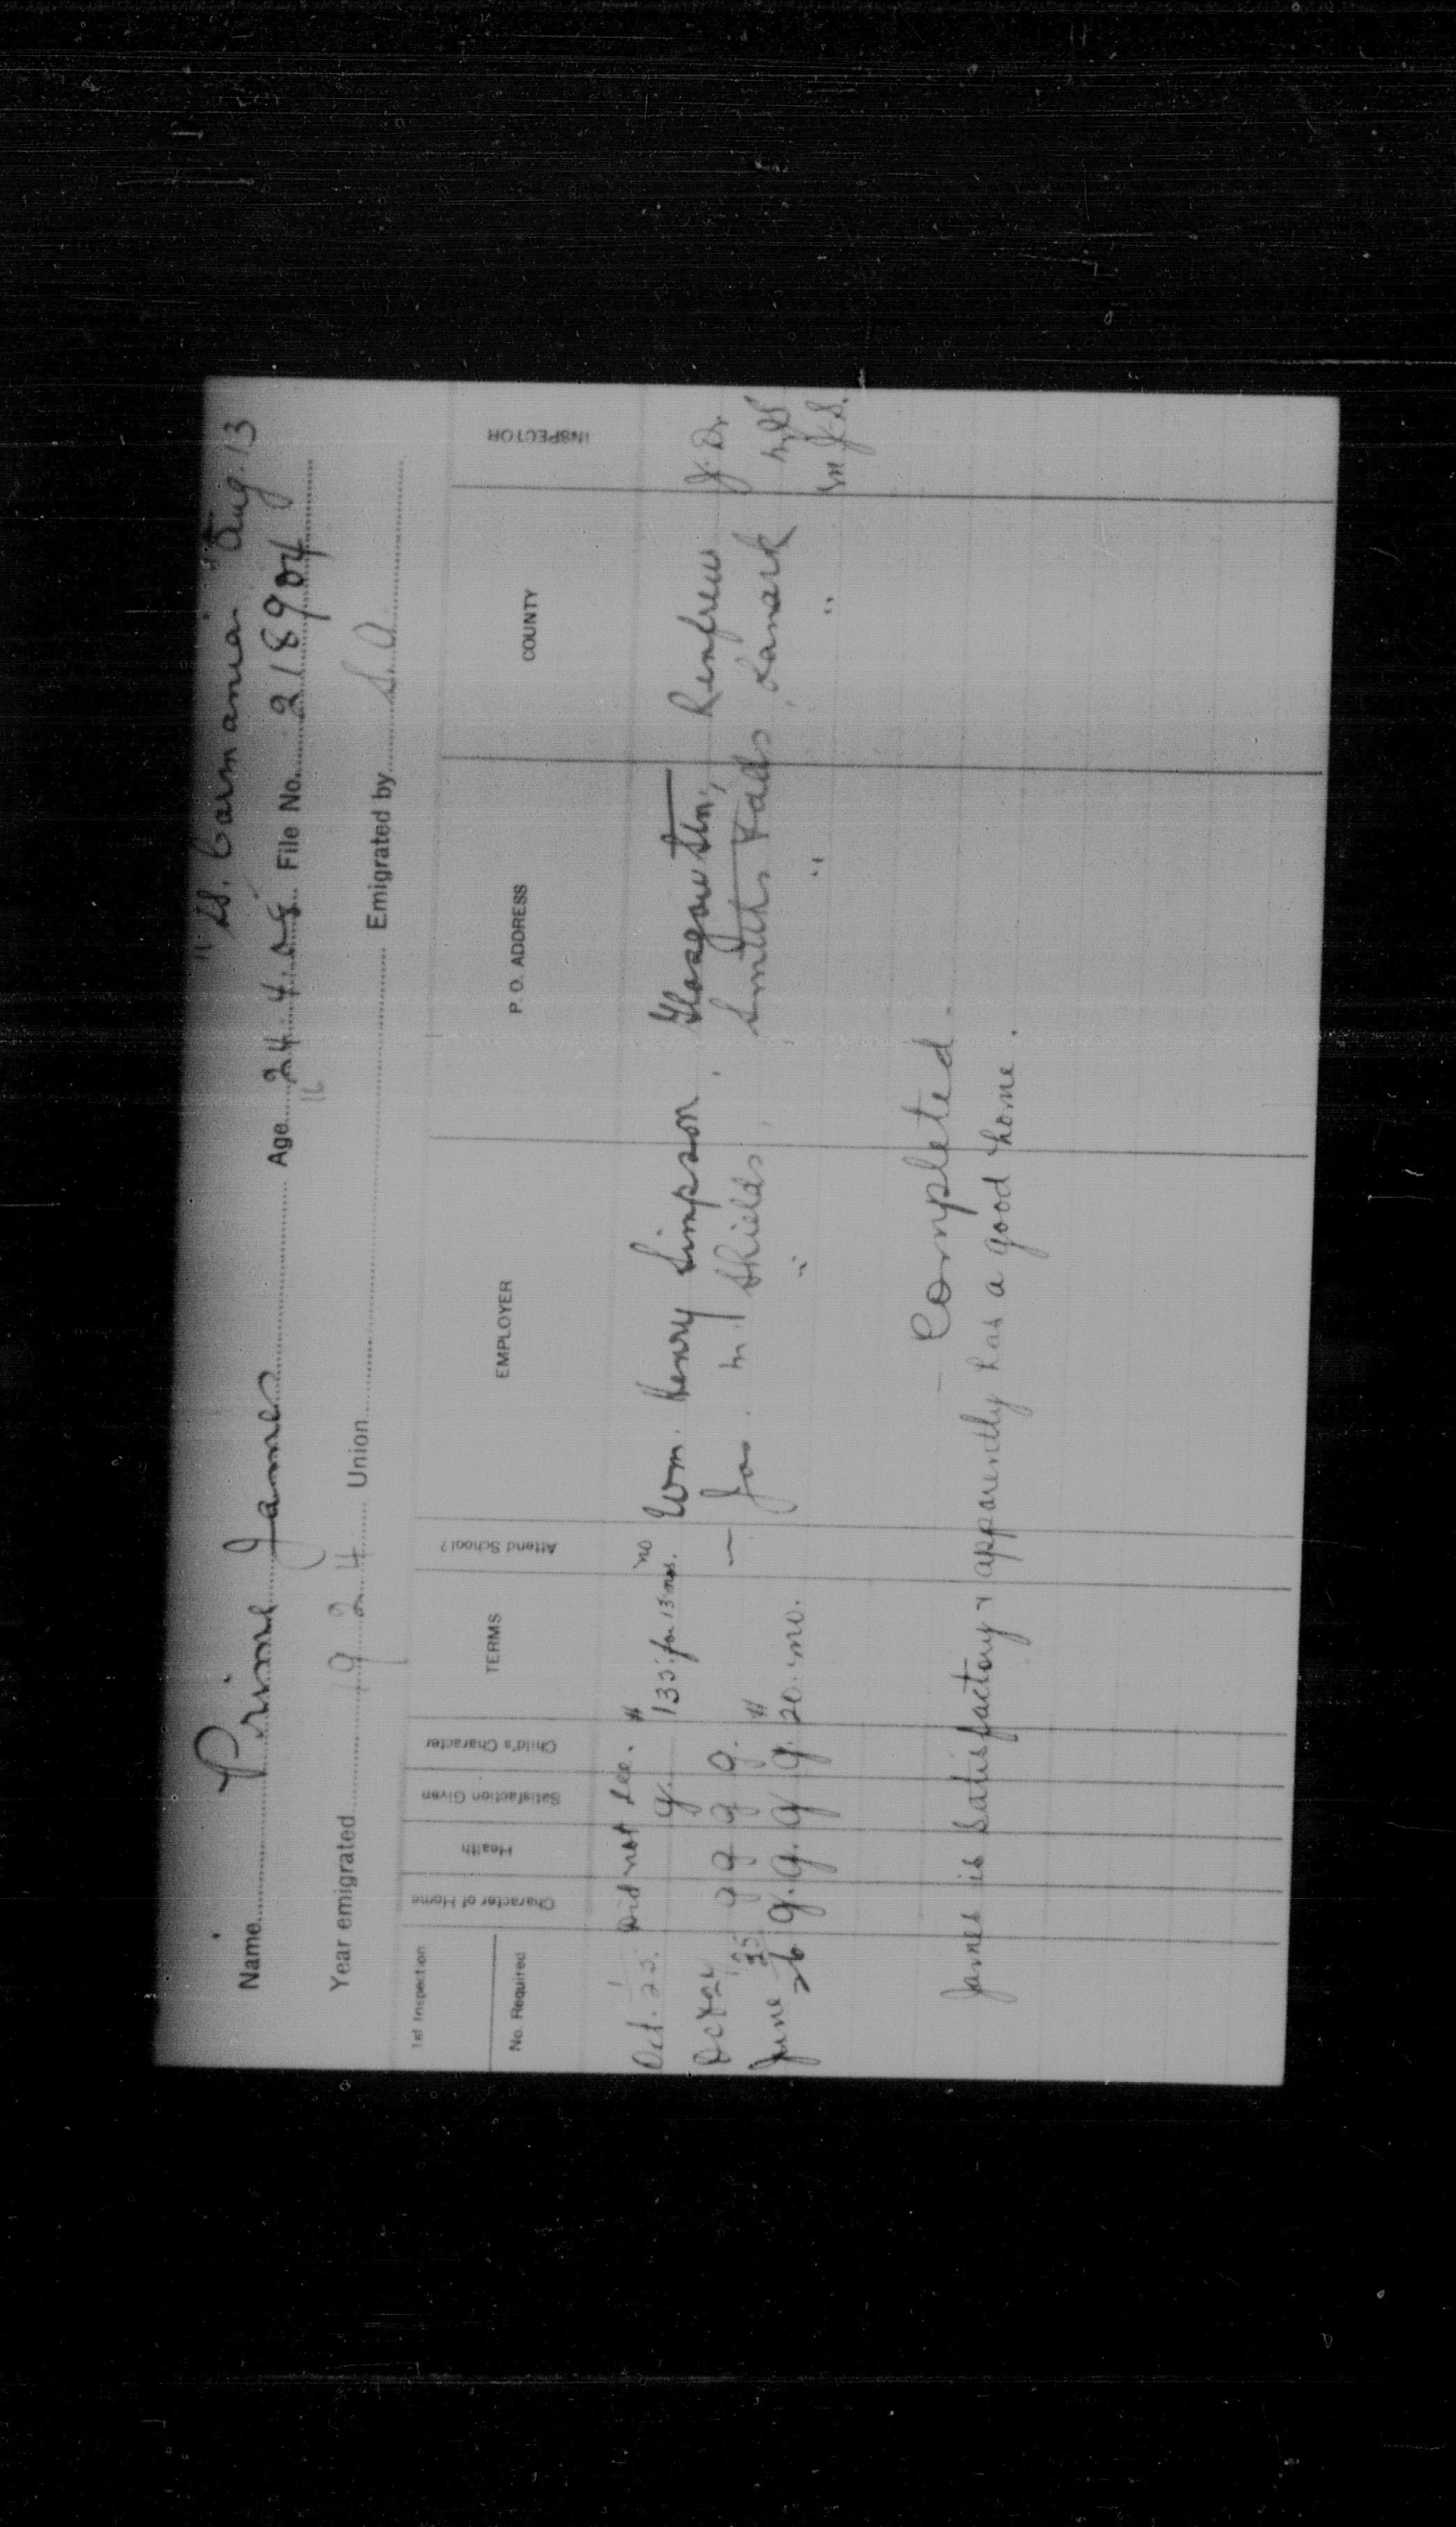 "SS. Carmania" Aug. 13
Name Prime James Age 24.4.08 File No. 218904
16
Year emigrated 1924 Union Emigrated by S.A.
1st Inspection
No. Required
Character of Home Health Satisfaction Given Child's Character TERMS Attend School? EMPLOYER P. O. ADDRESS COUNTY INSPECTOR
Oct. 25. Did not see. g. $135. for 13 mos. no Wm. Henry Simpson, Glasgow Stn., Renfrew
Oct 24 g g g g. — Jas. M. Shields, Smiths Falls, Lanark
June 26 g. g. g. g. $20. mo. " " " M.J.S.
Completed.
James is satisfactory & apparently has a good home.